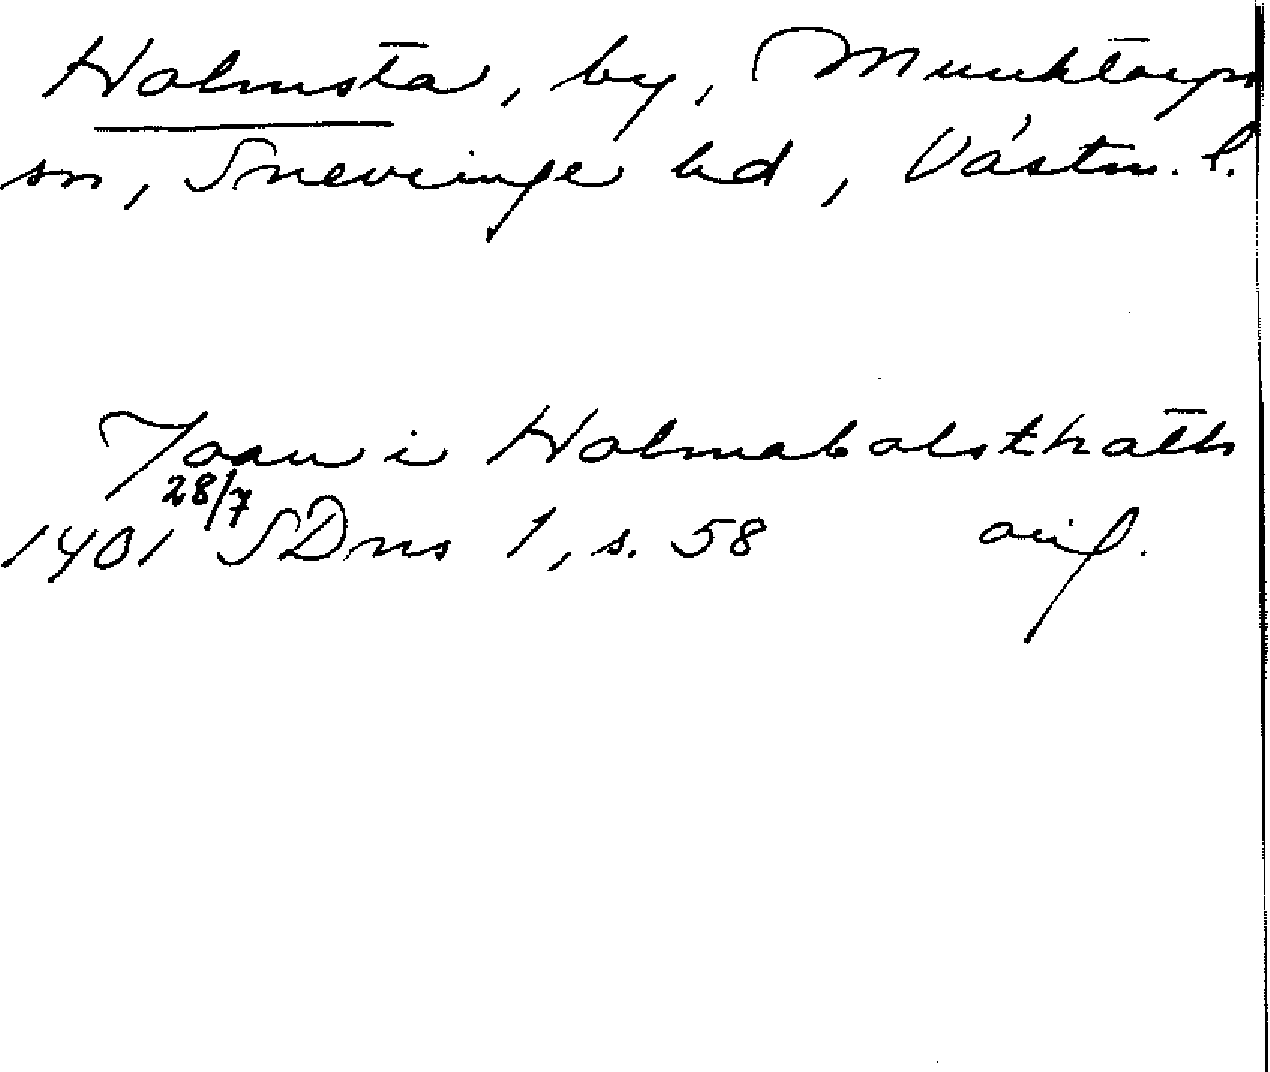 Holmsta, by, Munktorps
sn, Snevringe hd, Västm. l.
Joan i Holmabolsthath
1401 28/7 SDns 1, s. 58 orig.